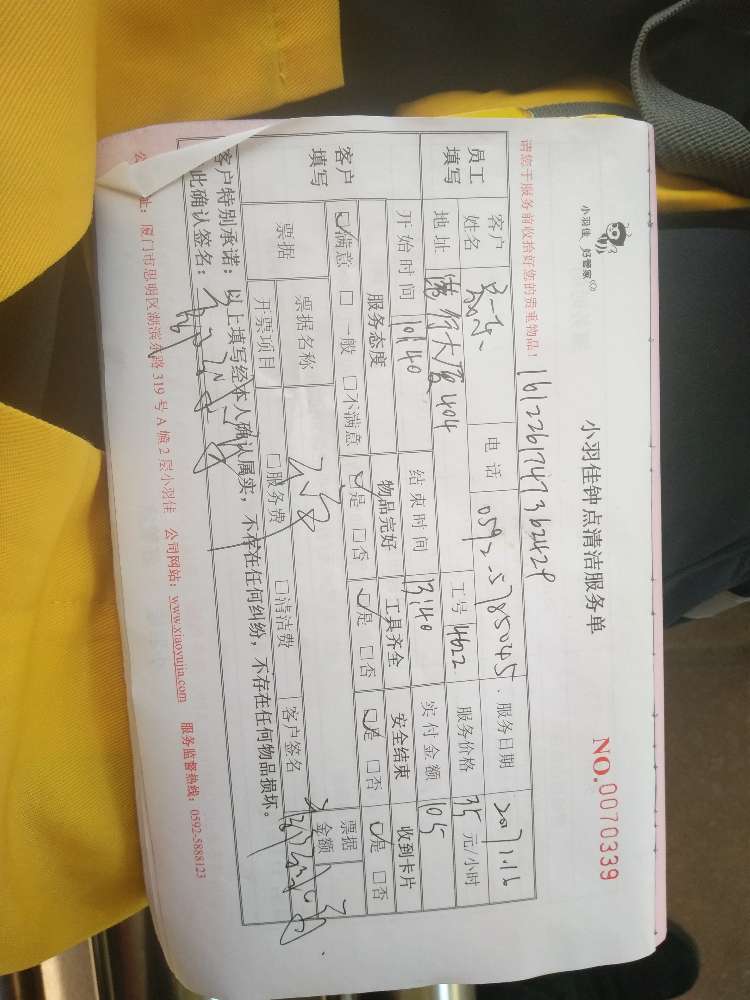 小羽佳 好管家
小羽佳钟点清洁服务单
NO.0070339
请您于服务前收拾好您的贵重物品!
1612261747362429
员工填写
客户姓名 电话 0592-5785045 服务日期 2017.1.16
地址 港行大厦404 工号 4622 服务价格 35 元/小时
开始时间 10:40 结束时间 13:40 实付金额 105
客户填写
服务态度 物品完好 工具齐全 安全结束 收到卡片
☑满意 □一般 □不满意 ☑是 □否 ☑是 □否 ☑是 □否 ☑是 □否
票据 票据名称 票据金额
开票项目 □服务费 □清洁费 客户签名
客户特别承诺:以上填写经本人确认属实,不存在任何纠纷,不存在任何物品损坏。
此确认签名:
址:厦门市思明区湖滨东路319号A幢2层小羽佳 公司网站:www.xiaoyujia.com 服务监督热线:0592-5888123